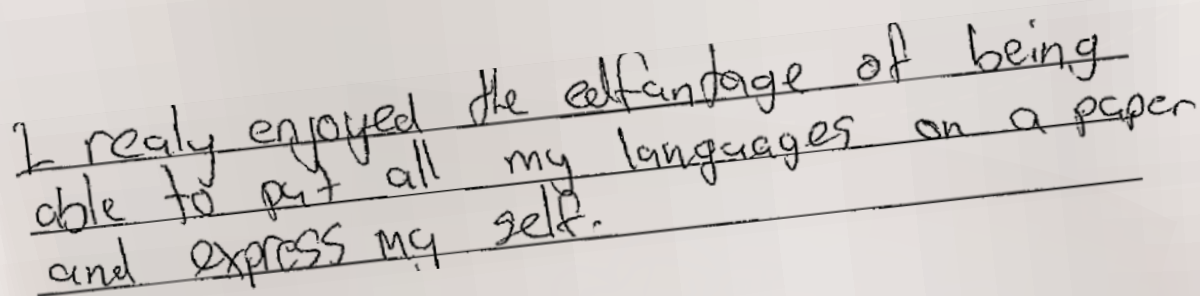 I realy enjoyed the edfantage of being
able to put all my languages on a paper
and express my self.